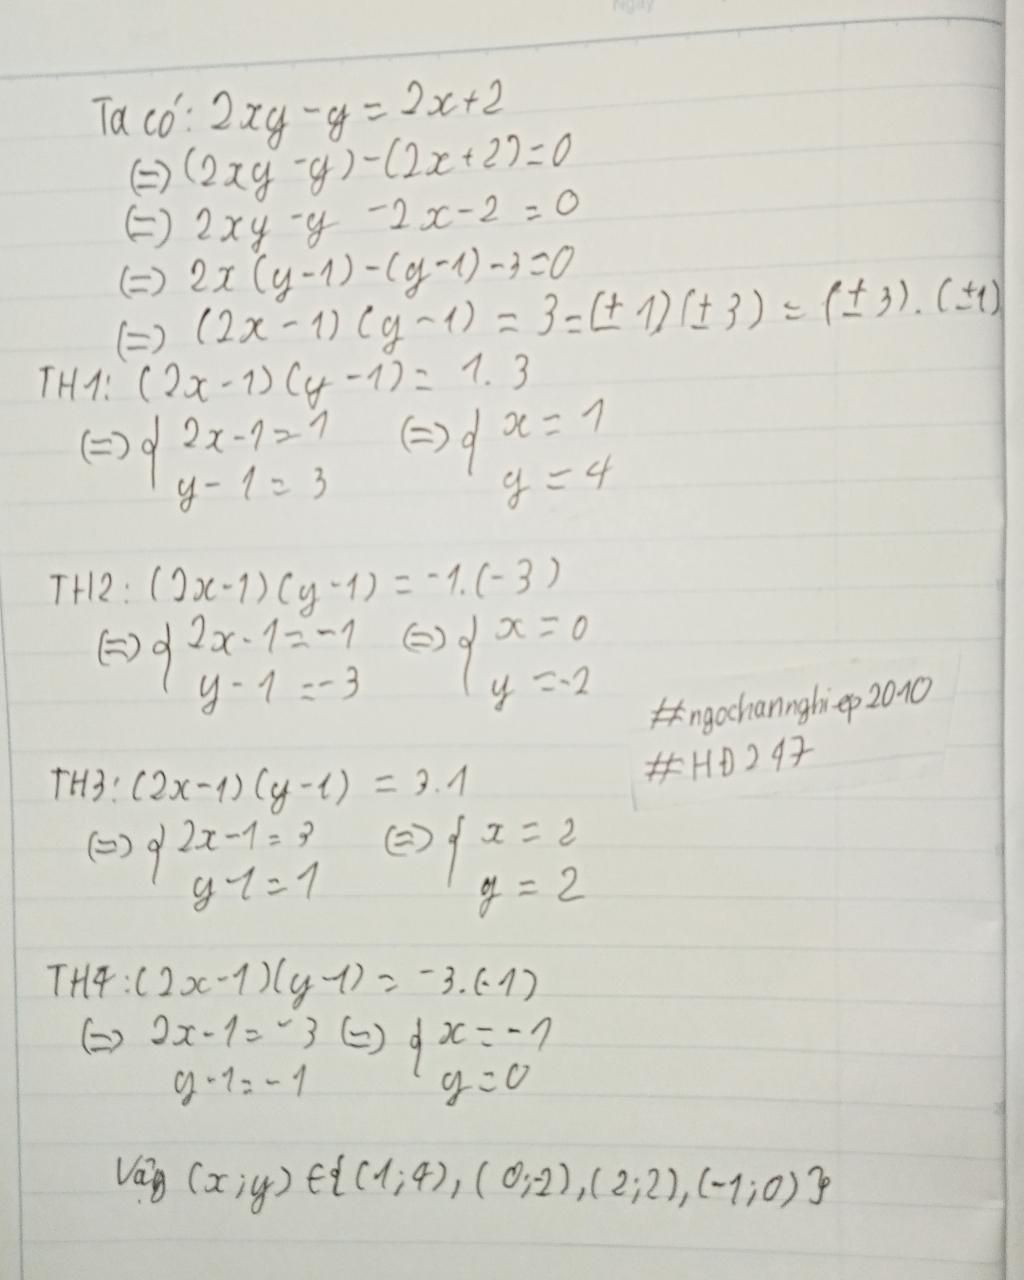 Ngày
Ta có: 2xy - y = 2x + 2
(=) (2xy - y) - (2x + 2) = 0
(=) 2xy - y - 2x - 2 = 0
(=) 2x (y - 1) - (y - 1) - 3 = 0
(=) (2x - 1) (y - 1) = 3 = (± 1) (± 3) = (± 3) . (±1)
TH1: (2x - 1) (y - 1) = 1. 3
(=) { 2x - 1 = 1 (=) { x = 1
y - 1 = 3 y = 4
TH2: (2x - 1) (y - 1) = -1.(-3)
(=) { 2x - 1 = -1 (=) { x = 0
y - 1 = -3 y = -2
#ngochannghiep2010
#HĐ247
TH3: (2x - 1) (y - 1) = 3.1
(=) { 2x - 1 = 3 (=) { x = 2
y - 1 = 1 y = 2
TH4: (2x - 1) (y - 1) = -3.(-1)
(=) 2x - 1 = -3 (=) { x = -1
y - 1 = -1 y = 0
Vậy (x ; y) ∈ {(1; 4), (0; -2), (2; 2), (-1; 0)}